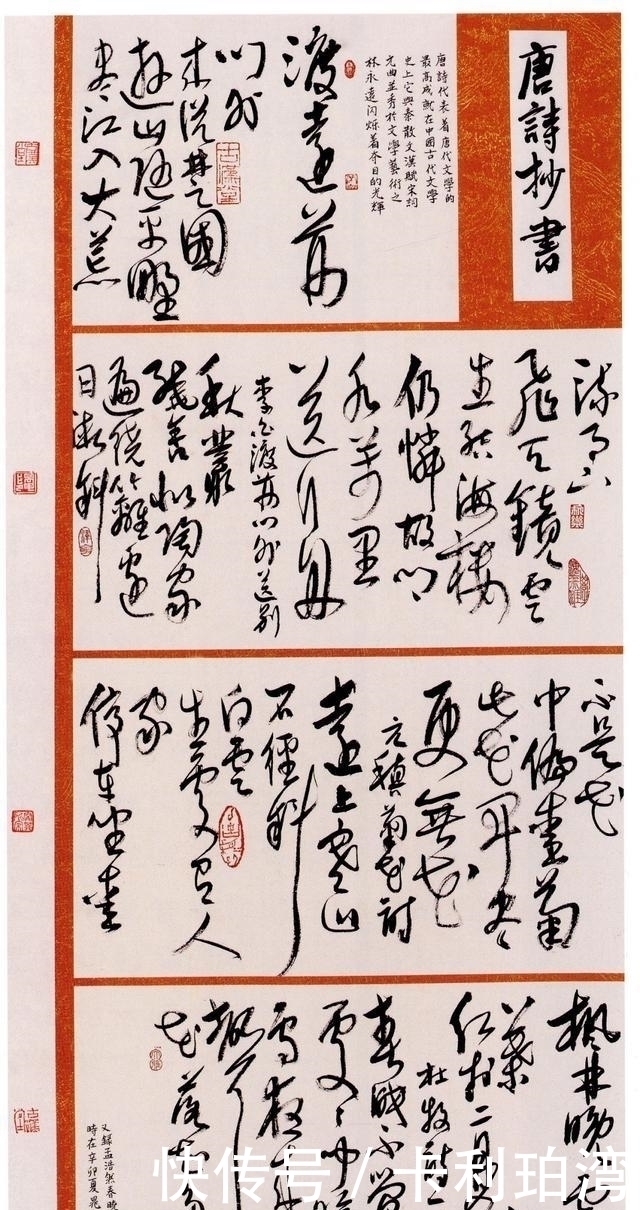 唐詩抄書
唐詩代表着唐代文學的
最高成就在中國古代文學
史上它與秦散文漢賦宋詞
元曲並秀於文學藝術之
林永遠闪烁着夺目的光輝
渡遠荊
门外
来從楚國
遊山随平野
盡江入大荒
流月下
飛天鏡雲
生結海樓
仍憐故鄉
水萬里
送行舟
李白渡荊门外送别
秋叢
繞舍似陶家
遍繞籬邊
日漸斜
不是花
中偏愛菊
此花開盡
更無花
元稹菊花詩
遠上寒山
石徑斜
白雲
生處有人
家
停車坐愛
楓林晚霜
葉
红於二月
杜牧
春眠不覺
處處聞啼
花落知多
又錄孟浩然春曉
時在辛卯夏晁
快传号 / 卡利珀湾